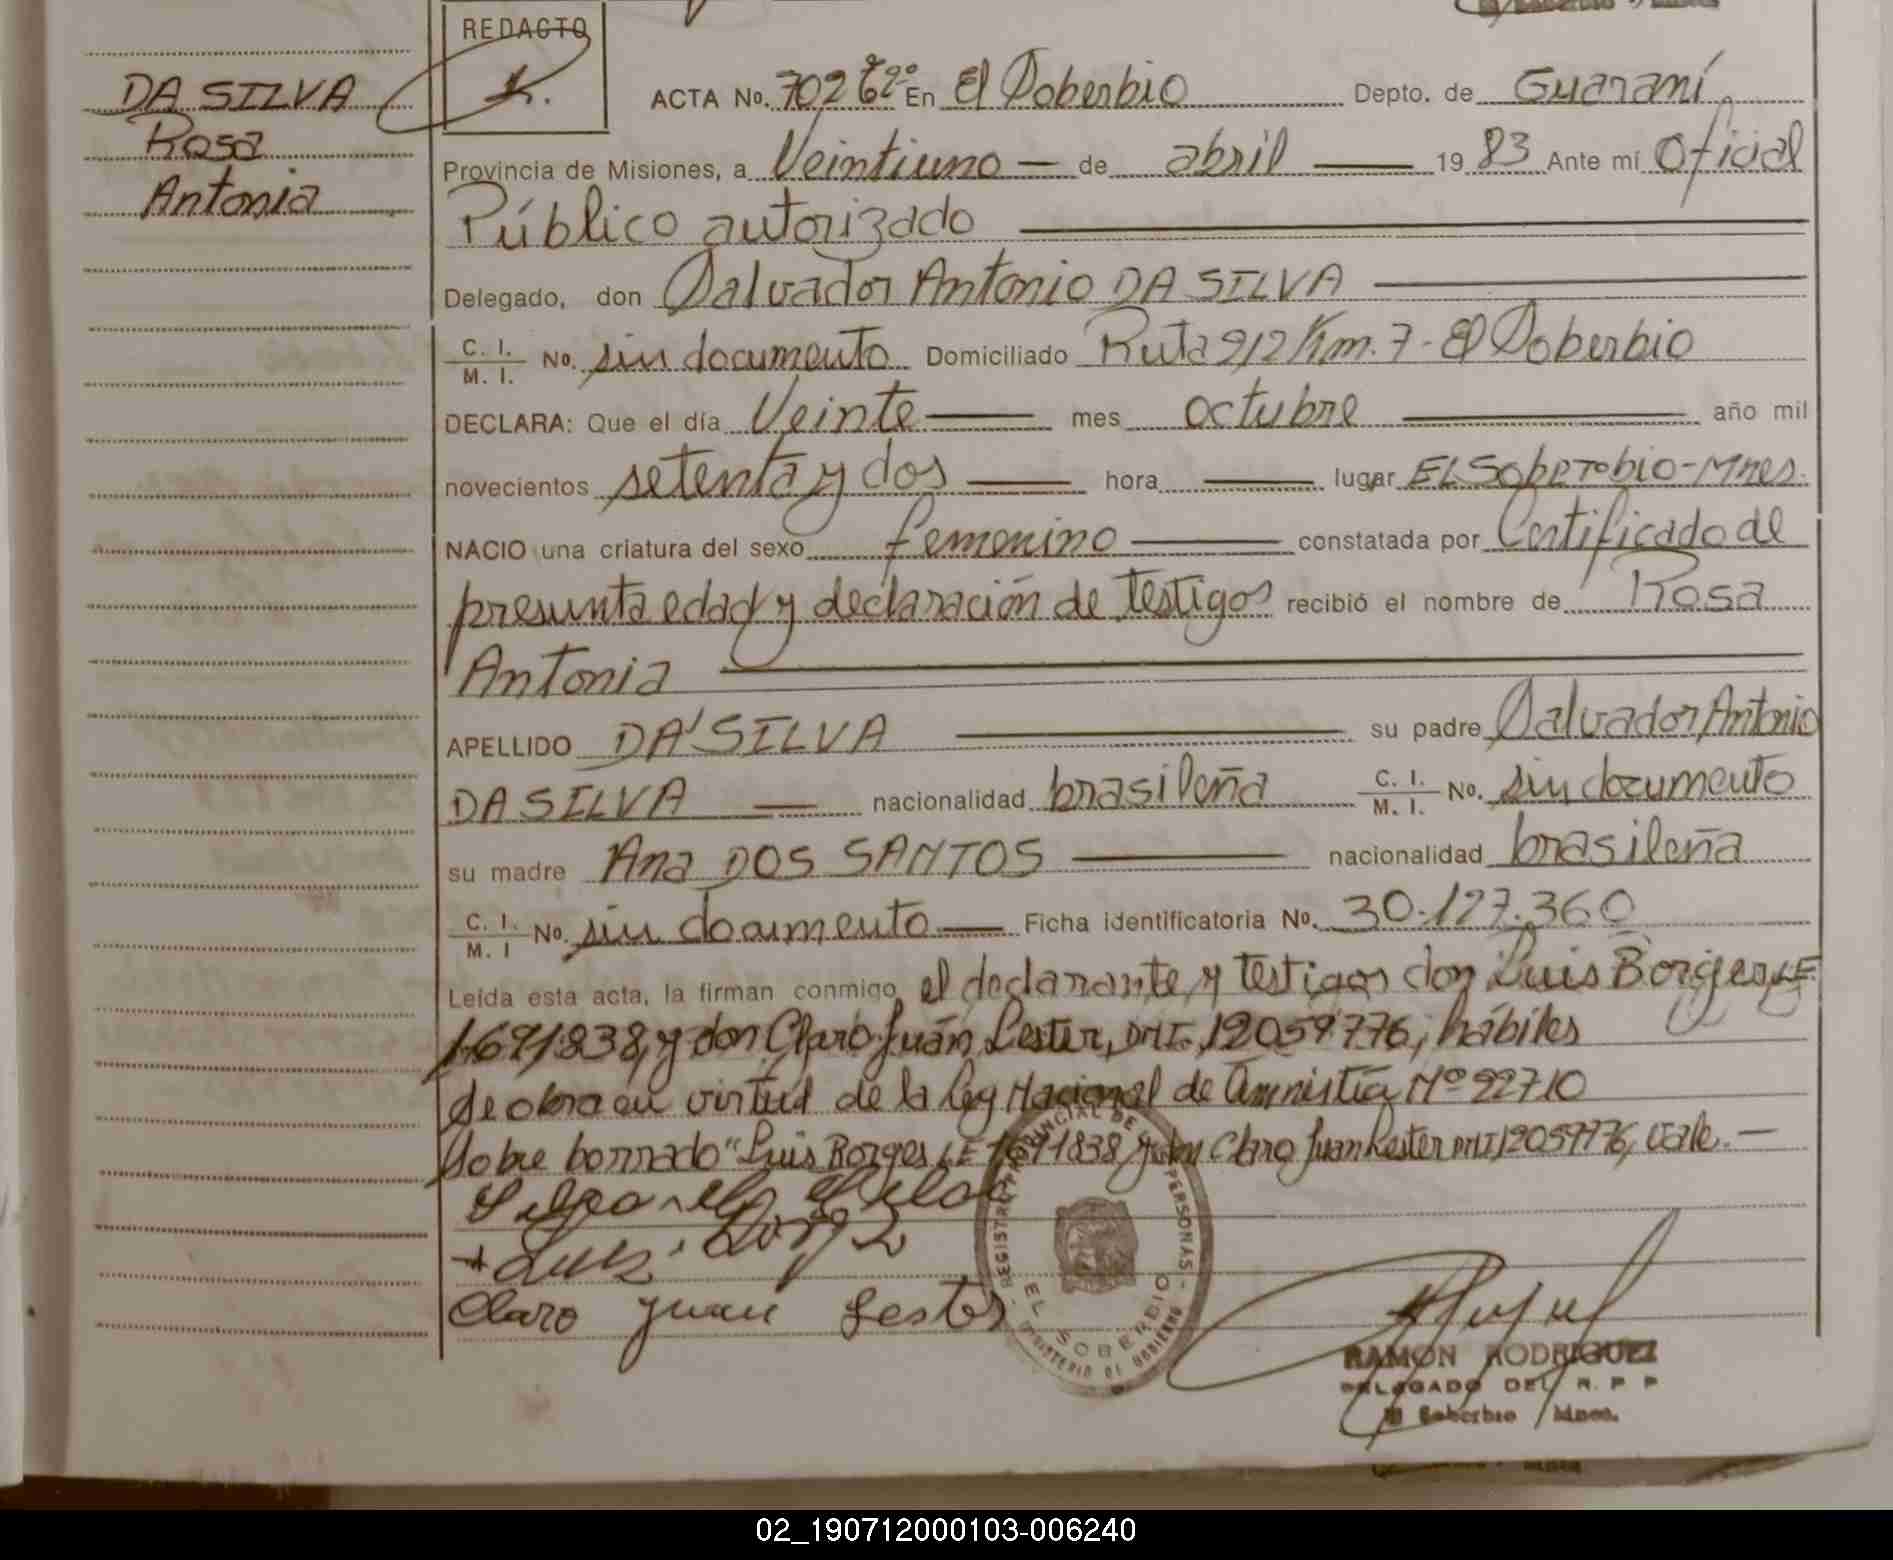 REDACTO
DA SILVA
Rosa
Antonia
ACTA No. 702 Tº 2º En El Soberbio Depto. de Guaraní
Provincia de Misiones, a Veintiuno — de abril — 19 83 Ante mí Oficial
Público autorizado
Delegado, don Salvador Antonio DA SILVA
C. I. / M. I. No. sin documento Domiciliado Ruta 212 Km. 7 - El Soberbio
DECLARA: Que el día Veinte — mes octubre — año mil
novecientos setenta y dos — hora — lugar EL Soberbio - Mnes.
NACIO una criatura del sexo femenino — constatada por Certificado de
presunta edad y declaración de testigos recibió el nombre de Rosa
Antonia
APELLIDO DA SILVA — su padre Salvador Antonio
DA SILVA — nacionalidad brasileña C. I. / M. I. No. sin documento
su madre Ana DOS SANTOS — nacionalidad brasileña
C. I. / M. I No. sin documento — Ficha identificatoria No. 30.127.360
Leída esta acta, la firman conmigo el declarante y testigos don Luis Borges, L.E.
1.691.838, y don Claro Juán Lester, DNI. 12059776, hábiles
Se obra en virtud de la Ley Nacional de Amnistía Nº 22710
Sobre borrado "Luis Borges L.E 1691838 y don Claro Juan Lester DNI 12059776, vale. —
Luis
Claro Juan Lester
REGISTRO PROVINCIAL DE LAS PERSONAS
EL SOBERBIO
MINISTERIO DE GOBIERNO
RAMON RODRIGUEZ
DELEGADO DEL R. P. P
El Soberbio Mnes.
02_190712000103-006240